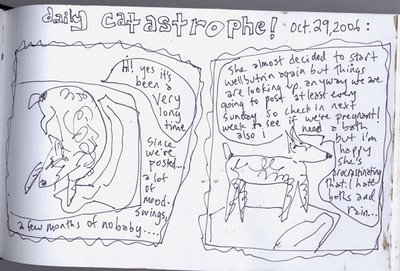 daily CATASTROPHE! oct. 29, 2006:
Hi! yes it's
been a
very
long
time
since
we've
posted...
a lot
of
mood-
swings,
a few months of no baby....
She almost decided to start
wellbutrin again but things
are looking up. anyway we are
going to post at least every
Sunday so check in next
week to see if we're pregnant!
also I need a bath
but i'm
happy
she's
procrastinating
that. I hate
baths and
rain...